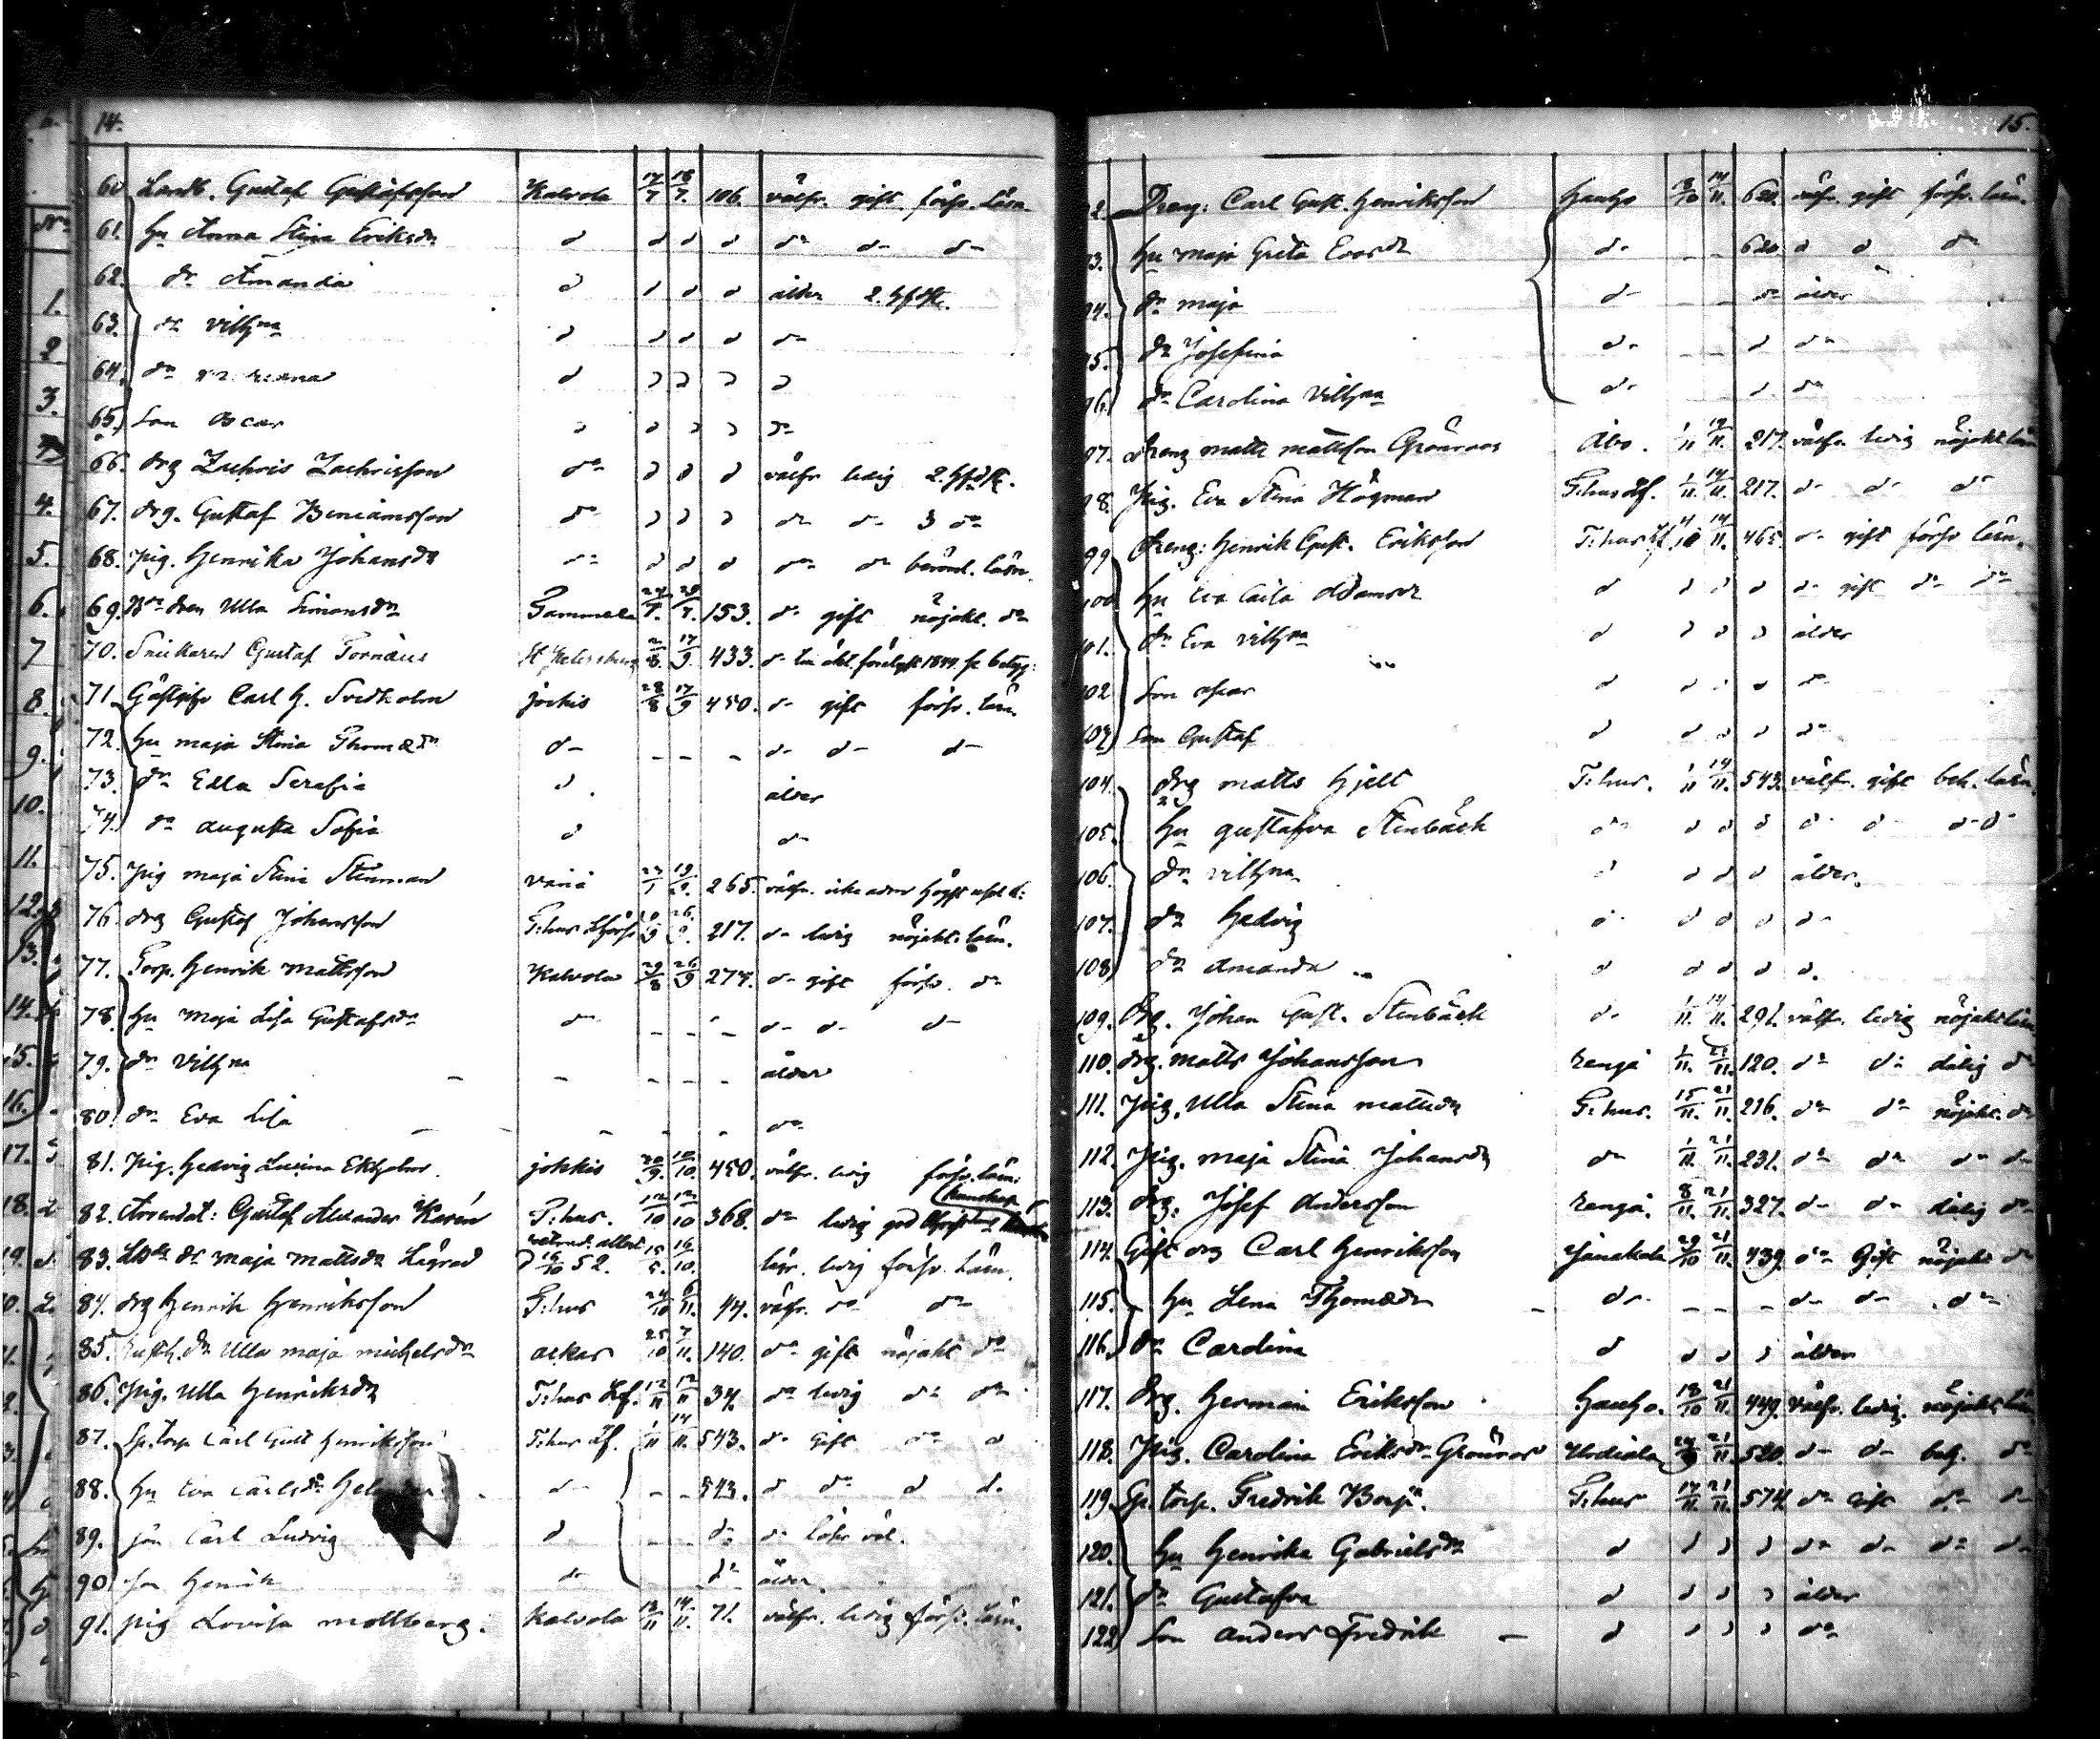 14.
60 Landb. Gustaf Gustafsson Kalvola 17/7 18/7. 106. välfr. gift försv. läsn.
61. hu Anna Stina Eriksdr d d d d do do do
62. dr Amanda d d d d ålder
63. dr Vilhna d d d d do
64. dr d d d d d
65. Son Oscar d d d d do
66. drg Zachris Zachrisson do d d d välfr ledig
67. drg. Gustaf Beniamsson do d d d do do 3 do
68. pig. Henrika Johansdr do d d d do do läsn.
69. Ulla Simonsdr Tammela 153. do gift nöjakt. do
70. Snickaren Gustaf Tornæus St Petersburg 17/9. 433. do
71. Gästgifv Carl G. Svedholm Jockis 28/8 17/9 450. do gift försv. läsn.
72. hu Maja Stina Thomædr do - - - do do do
73. dr Edla Serafia d. ålder
74. dr Augusta Sofia d do
75. pig Maja Stina Stenman 265. välfr.
76. drg Gustaf Johansson T:hus 217. do ledig nöjakt. läsn.
77. Torp. Henrik Mattsson Kalvola 29/8 26/9 274. do gift försv. do
78. hu Maja Lisa Gustafsdr do - - - do do do
79. dr Vilhna - - - - ålder
80. dr Eva Lisa - - - do
81. pig. Hedvig Lusina Ekholm Jokkis 20/9. 10/10. 450. välfr. ledig försv. läsn.
82. Arrendat: Gustaf Alexander Karén T:hus. 12/10 12/10 368. do ledig god Christend. kunskap
83. dr Maja Mattsdr Lågrad 16/10 52. 16/10. ledig försv. läsn.
84. drg Henrik Henriksson T:hus 24/10 6/11. 44. välfr. do do
85. Ulla Maja Michelsdr Ackas 25/10 7/11. 140. do gift nöjakt do
86. pig. Ulla Henriksdr T:hus Lf. 12/11 12/11 34. do ledig do do
87. Sp.torp Carl Gust Henriksson T:hus Lf. 1/11 14/11. 543. do gift do d
88. hu Eva Carlsdr do - - 543. d do d d.
89. son Carl Ludvig d - - do do
90. son Henrik do - - do ålder
91. pig Lovisa Mollberg. Kalvola 12/11 14/11. 71. välfr. ledig försv. läsn.
15.
92. Dreng: Carl Gust. Henriksson Hauho 14/11. 620. välfr. gift försv. läsn.
93. hu Maja Greta Evasdr do - - 620. d d do
94. dr Maja do - - do ålder
95. dr Josefina do - - d do
96. dr Carolina Vilhna do d do
97. dreng Matts Mattsson Grönroos Åbo. 1/11 14/11. 217. välfr. ledig nöjakt läsn
98. Pig. Eva Stina Högman T:hus Lf. 1/11. 14/11. 217. do do do
99 dreng: Henrik Gust. Eriksson T:hus Lf 14/11. 465. do gift försv läsn.
100 hu Eva Caisa Adamsdr d d d d do gift do do
101. dr Eva Vilhna d d d d ålder
102 Son d d d d do
103 Son Gustaf d d d d do
104. drg Matts Hjelt T:hus. 1/11 14/11. 543. välfr. gift beh. läsn.
105. hu Gustafva Stenbäck do d d d d do do do
106. dr Vilhna d d d d ålder.
107. dr Hedvig d d d d do
108 dr Amanda d d d d d.
109. drg. Johan Gust. Stenbäck do 1/11. 14/11. 291. välfr. ledig nöjakt läsn
110. drg. Matts Johansson Rengå 1/11. 21/11. 120. do do dålig do
111. pig. Ulla Stina Mattsdr T:hus. 15/11. 21/11. 216. do do nöjakt. do
112. pig. Maja Stina Johansdr do 1/11. 21/11. 231. do do do do
113. drg. Josef Andersson Rengå. 8/11. 21/11. 327. do do dålig do
114. Gift drg Carl Henriksson Janakala 29/10 21/11. 439. do Gift nöjakt do
115. hu Lena Thomædr - do - - - do do do
116. dr Carolina d d d d ålder
117. drg. Herman Eriksson Hauho. 18/10 21/11. 449. välfr. ledig. nöjakt. läsn
118. pig. Carolina Eriksdr Grönroos Urdiala 21/11. 520. do do beh. do
119. Sp. torp. Fredrik Borg T:hus 17/11. 21/11. 574. do gift do do
120. hu Henrika Gabrielsdr d d d d do do do do
121. dr Gustafva d d d d ålder
122. Son Anders Fredrik - d d d d do